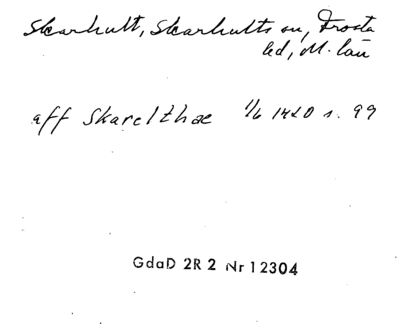 Skarhult, Skarhults sn, Frosta
hd, M. län
aff Skarelthae 1/6 1420 s. 99
GdaD 2R 2 Nr 12304